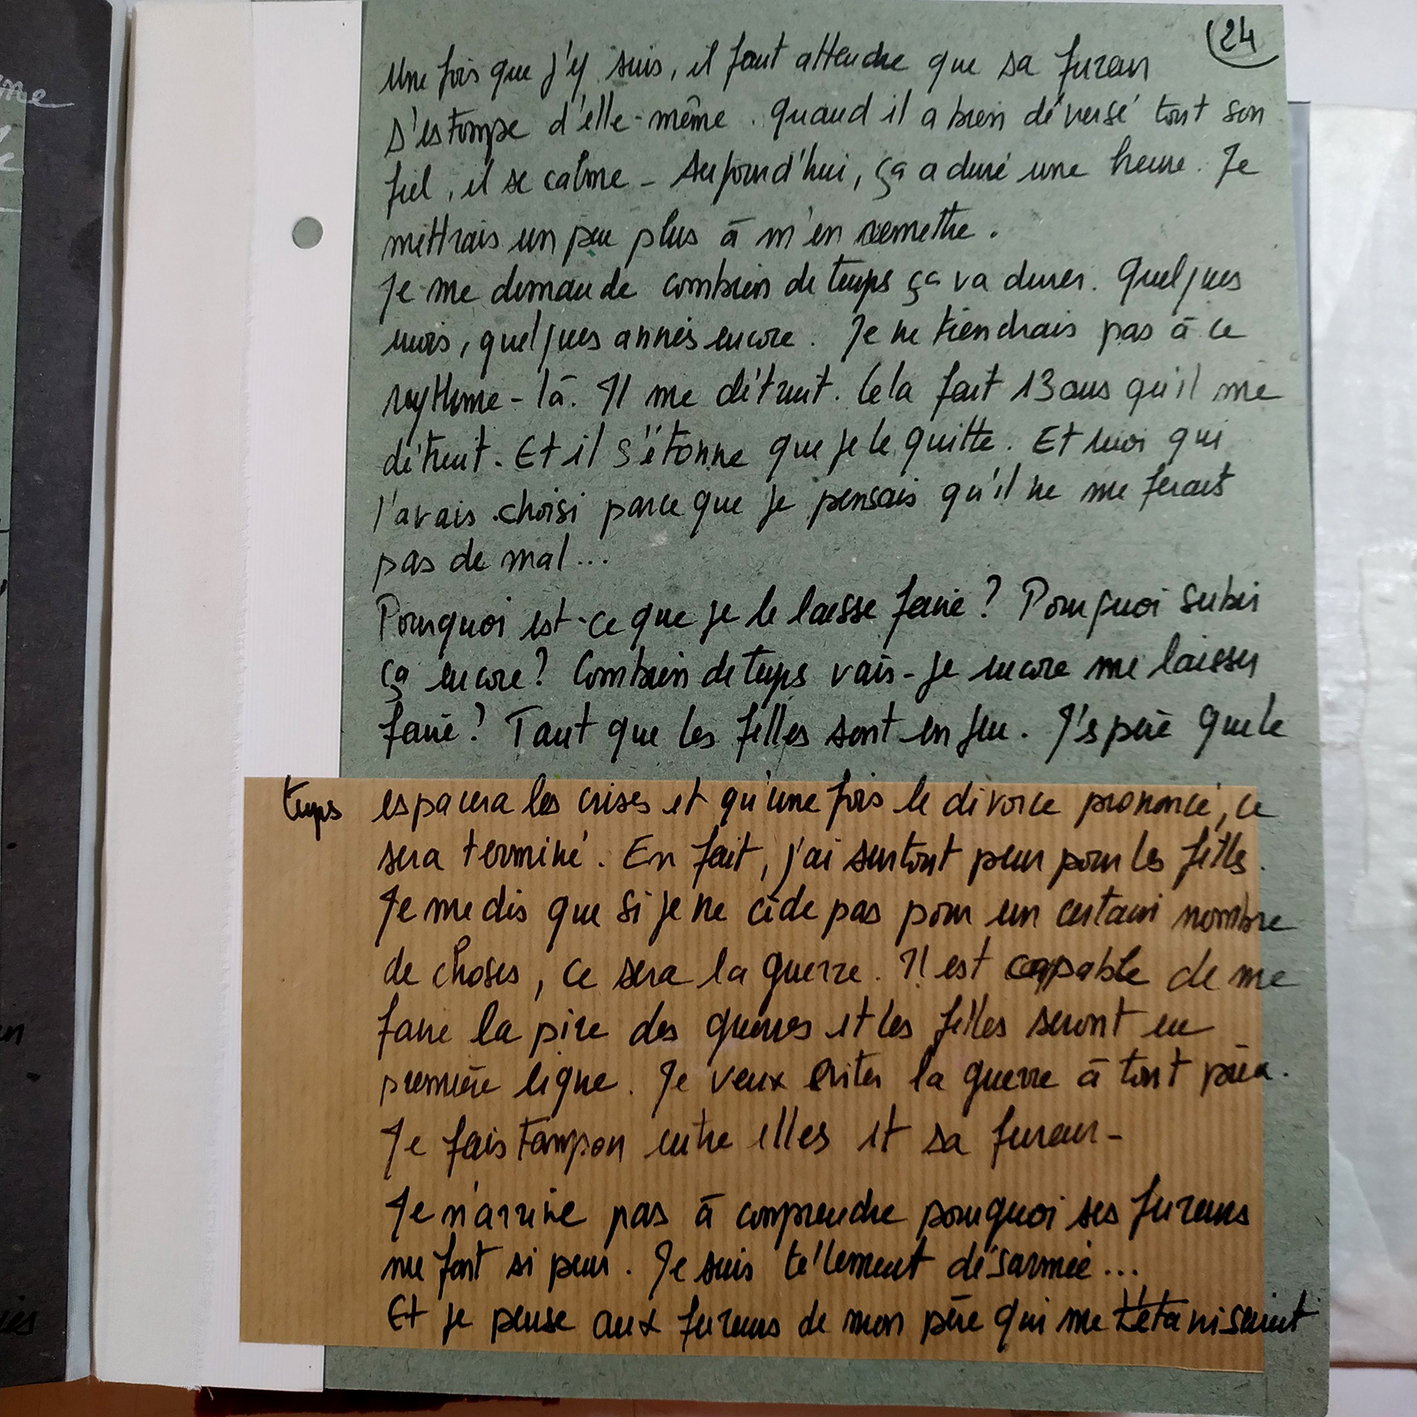 24
Une fois que j'y suis, il faut attendre que sa fureur
s'estompe d'elle-même. Quand il a bien déversé tout son
fiel, il se calme - Aujourd'hui, ça a duré une heure. Je
mettrais un peu plus à m'en remettre.
Je me demande combien de temps ça va durer. Quelques
mois, quelques années encore. Je ne tiendrais pas à ce
rythme-là. Il me détruit. Cela fait 13 ans qu'il me
détruit. Et il s'étonne que je le quitte. Et moi qui
l'avais choisi parce que je pensais qu'il ne me ferait
pas de mal...
Pourquoi est-ce que je le laisse faire ? Pourquoi subir
ça encore ? Combien de temps vais-je encore me laisser
faire ? Tant que les filles sont en jeu. J'espère que le
temps espacera les crises et qu'une fois le divorce prononcé, ce
sera terminé. En fait, j'ai surtout peur pour les filles.
Je me dis que si je ne cède pas pour un certain nombre
de choses, ce sera la guerre. Il est capable de me
faire la pire des guerres et les filles seront en
première ligne. Je veux éviter la guerre à tout prix.
Je fais tampon entre elles et sa fureur -
Je n'arrive pas à comprendre pourquoi ses fureurs
me font si peur. Je suis tellement désarmée...
Et je pense aux fureurs de mon père qui me tétanisaient